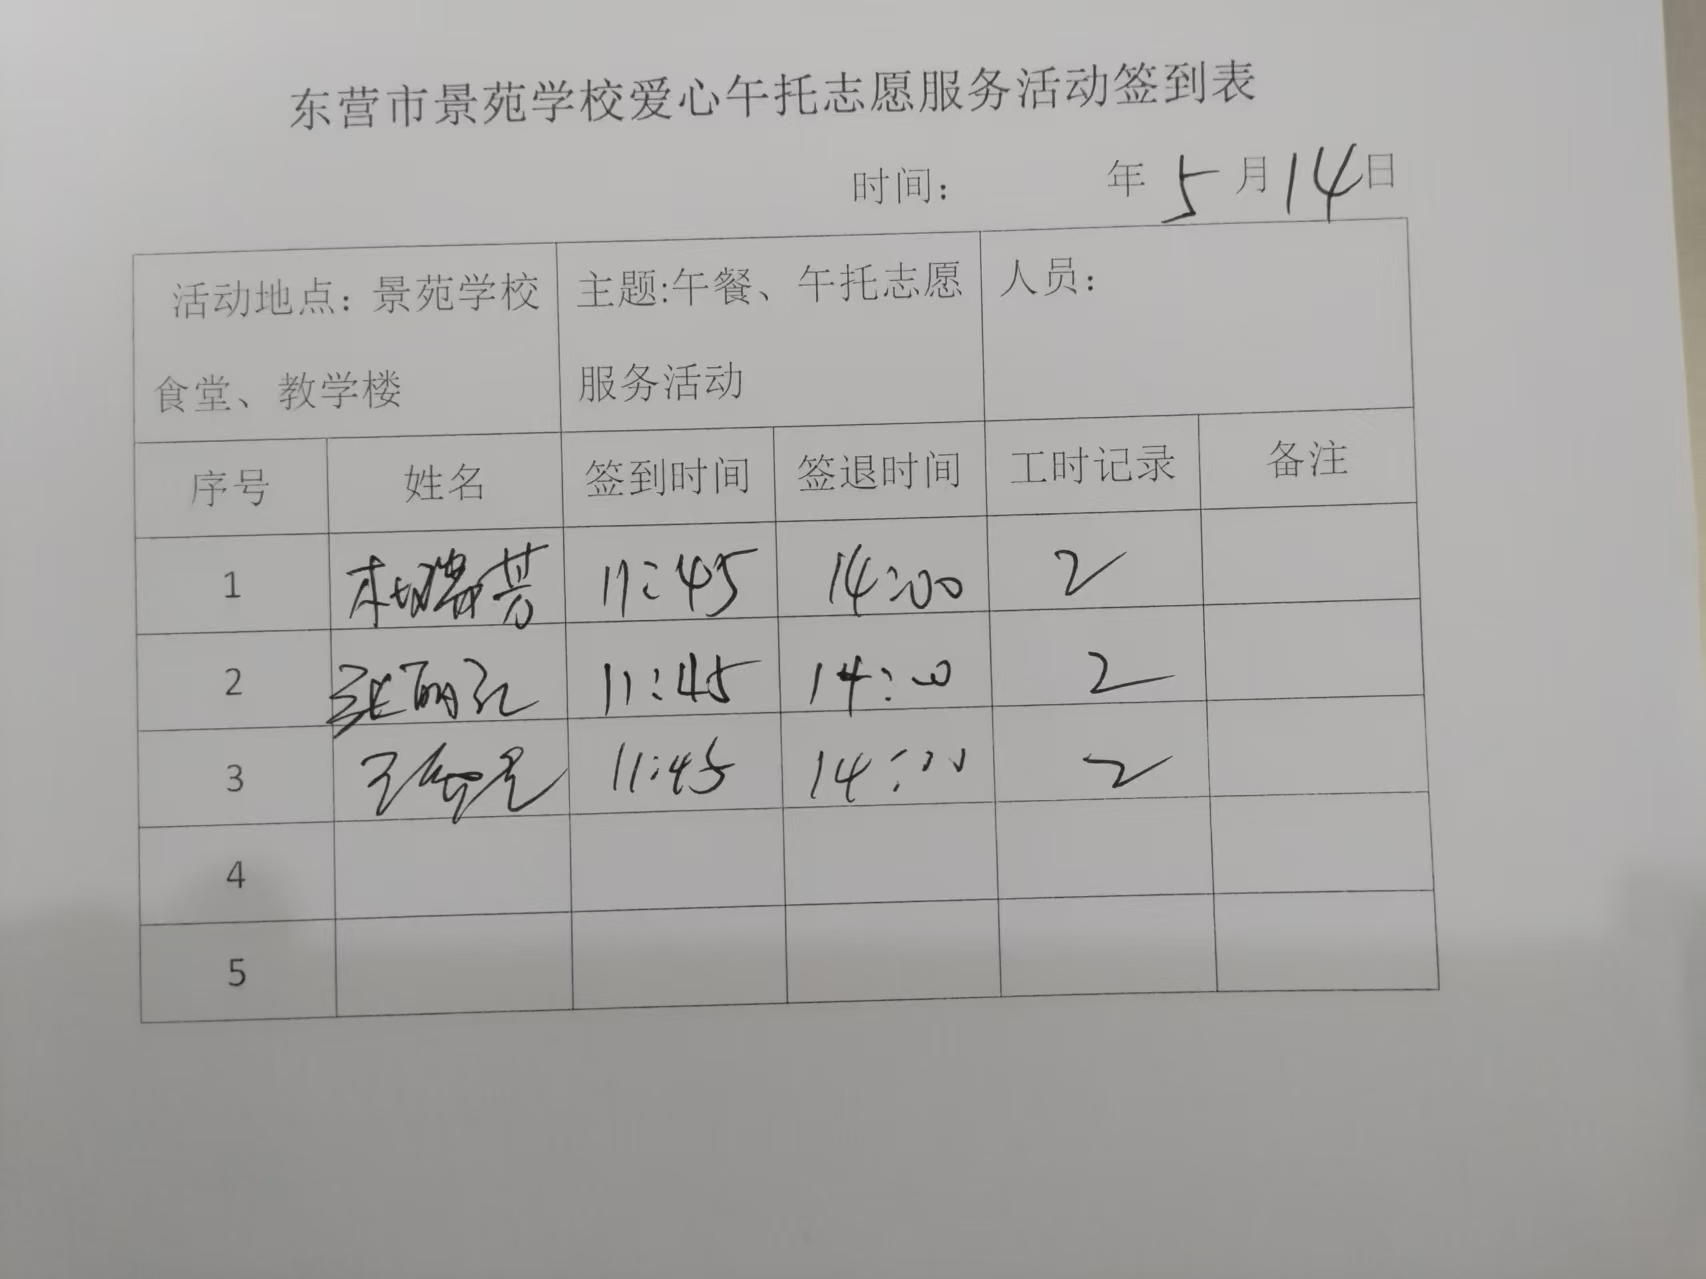 东营市景苑学校爱心午托志愿服务活动签到表
时间： 年 5 月 14 日
活动地点：景苑学校
食堂、教学楼
主题:午餐、午托志愿
服务活动
人员：
序号 姓名 签到时间 签退时间 工时记录 备注
1 11:45 14:00 2
2 张丽红 11:45 14:00 2
3 11:45 14:00 2
4
5